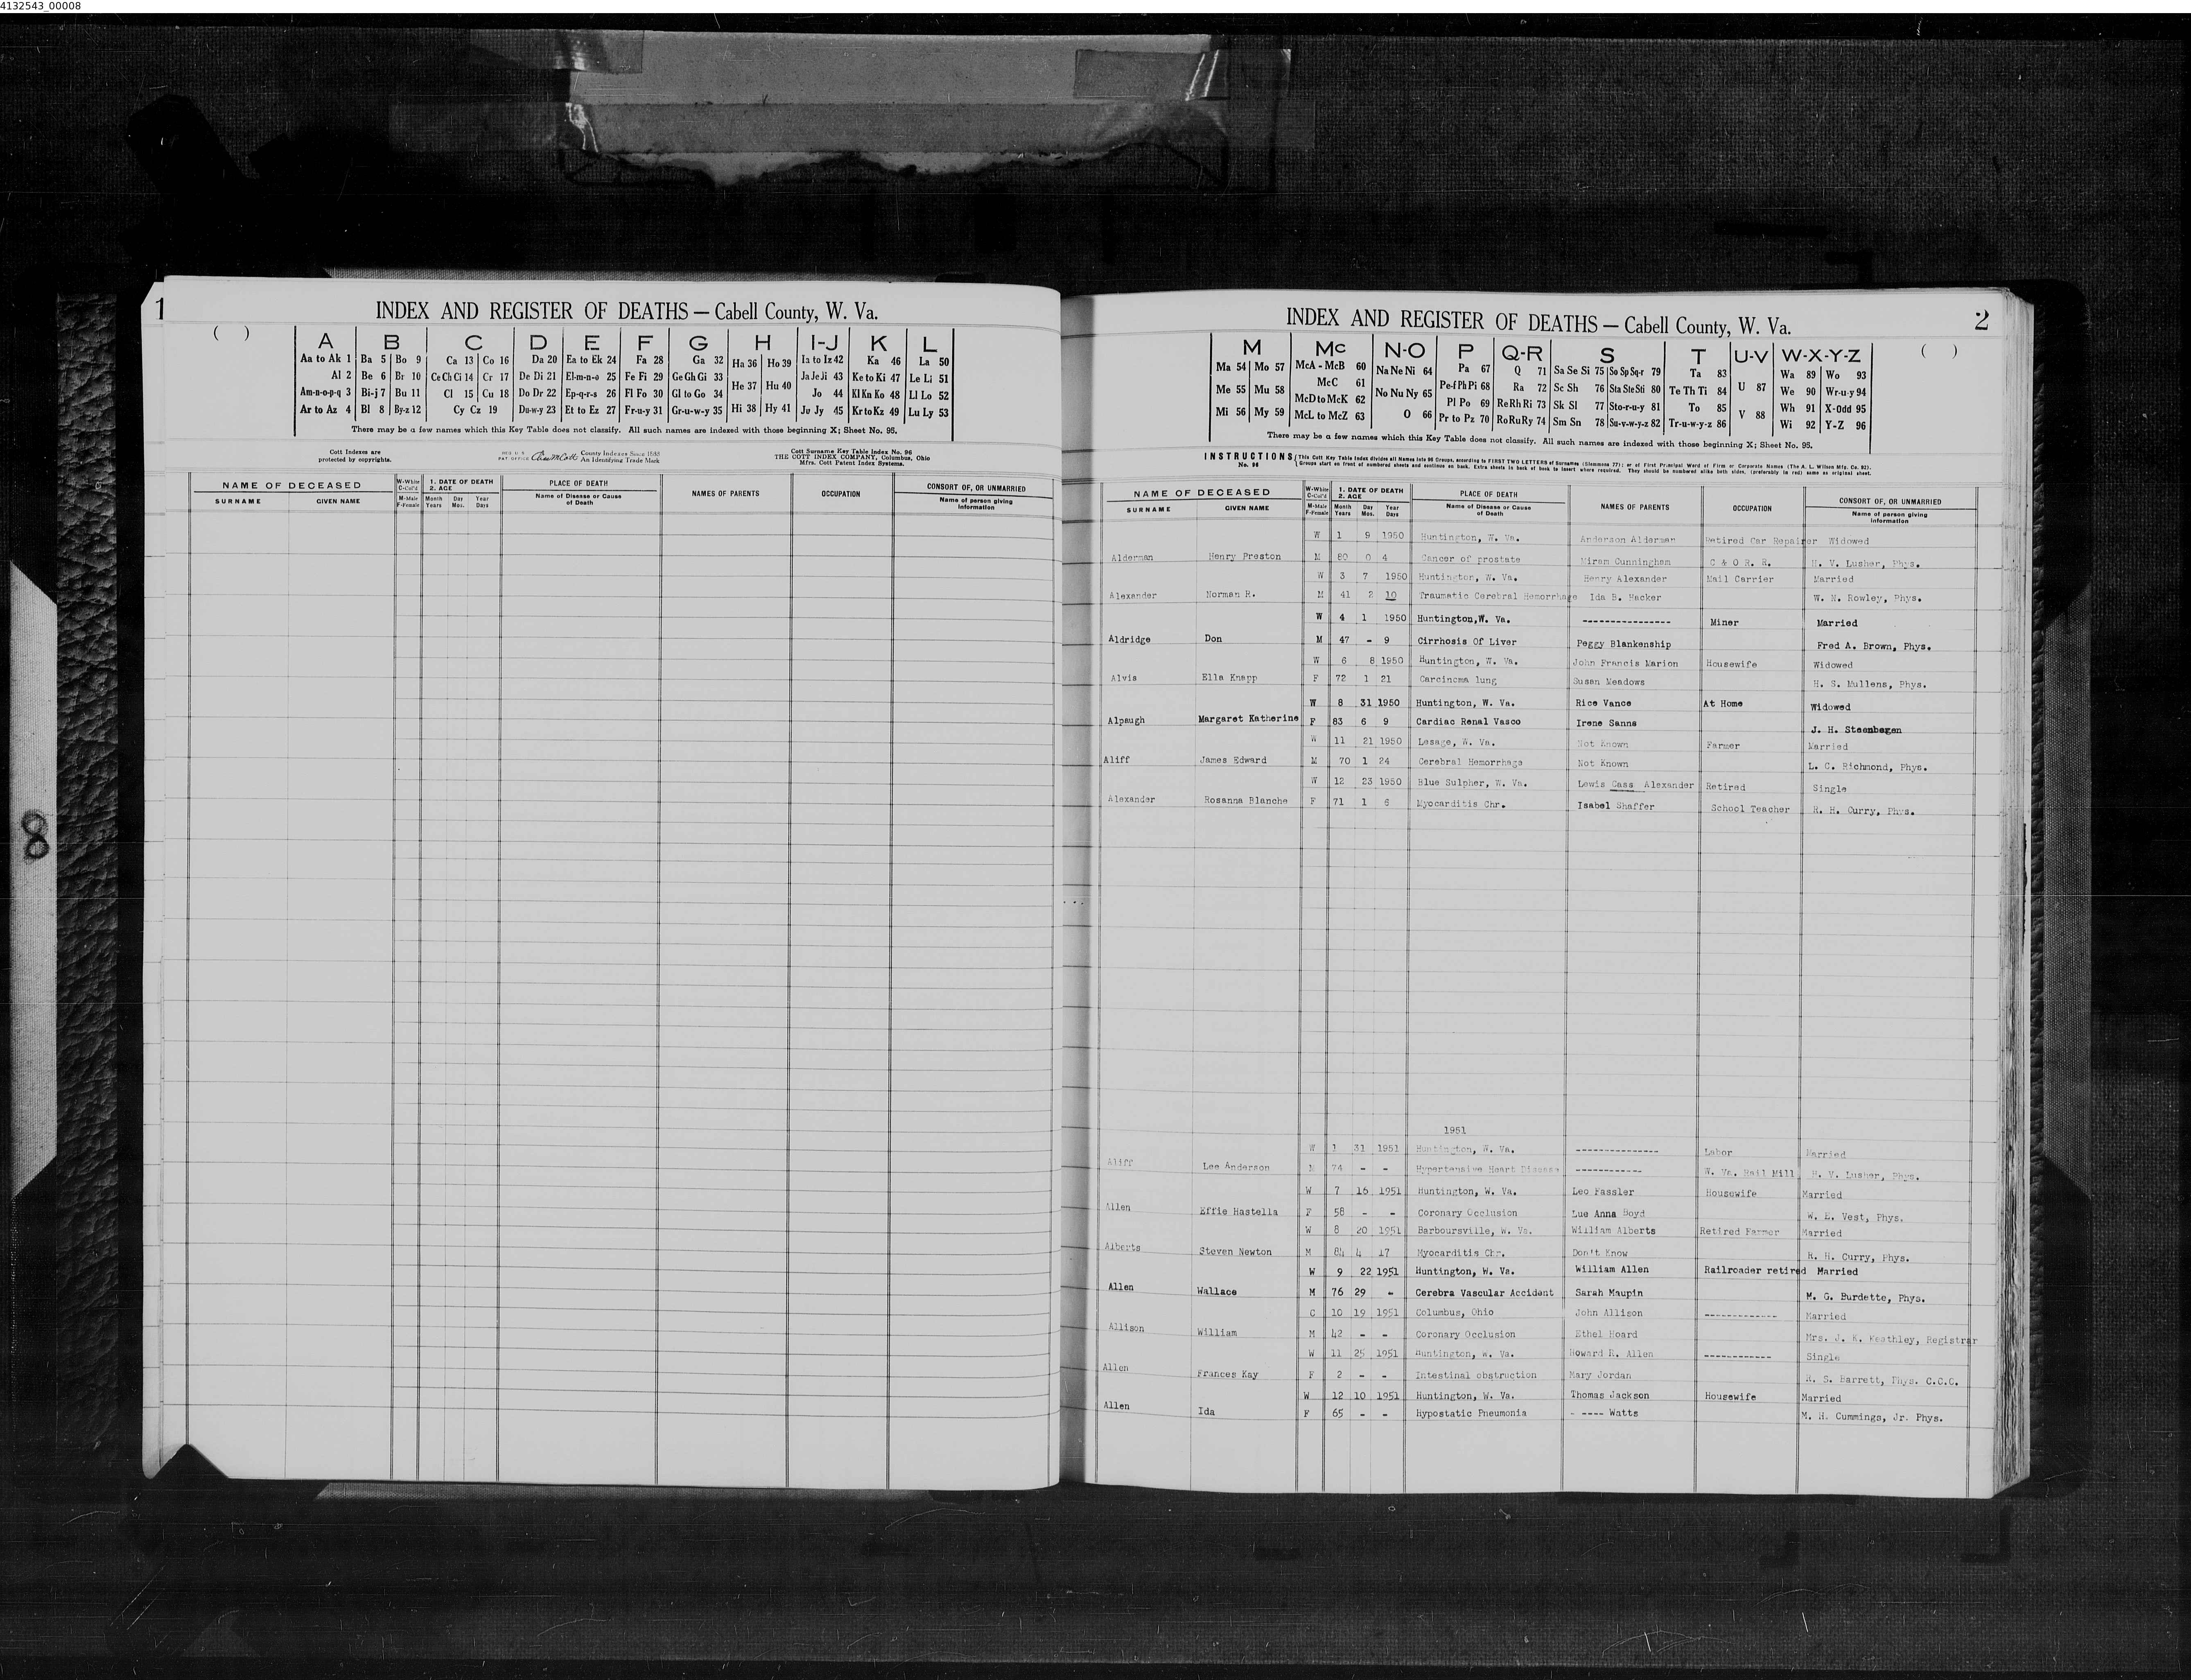 4132543_00008
8
1
INDEX AND REGISTER OF DEATHS — Cabell County, W. Va.
( )
A B C D E F G H I-J K L
Aa to Ak 1 Ba 5 Bo 9 Ca 13 Co 16 Da 20 Ea to Ek 24 Fa 28 Ga 32 Ha 36 Ho 39 Ia to Iz 42 Ka 46 La 50
Al 2 Be 6 Br 10 Ce Ch Ci 14 Cr 17 De Di 21 El-m-n-o 25 Fe Fi 29 Ge Gh Gi 33 He 37 Hu 40 Ja Je Ji 43 Ke to Ki 47 Le Li 51
Am-n-o-p-q 3 Bi-j 7 Bu 11 Cl 15 Cu 18 Do Dr 22 Ep-q-r-s 26 Fl Fo 30 Gl to Go 34 Jo 44 Kl Kn Ko 48 Ll Lo 52
Ar to Az 4 Bl 8 By-z 12 Cy Cz 19 Du-w-y 23 Et to Ez 27 Fr-u-y 31 Gr-u-w-y 35 Hi 38 Hy 41 Ju Jy 45 Kr to Kz 49 Lu Ly 53
There may be a few names which this Key Table does not classify. All such names are indexed with those beginning X; Sheet No. 95.
Cott Indexes are
protected by copyrights.
County Indexes Since 1888
An Identifying Trade Mark
Cott Surname Key Table Index No. 96
THE COTT INDEX COMPANY, Columbus, Ohio
Mfrs. Cott Patent Index Systems.
NAME OF DECEASED W-White 1. DATE OF DEATH PLACE OF DEATH NAMES OF PARENTS OCCUPATION CONSORT OF, OR UNMARRIED
C-Col'd 2. AGE
SURNAME GIVEN NAME M-Male Month Day Year Name of Disease or Cause Name of person giving
F-Female Years Mos. Days of Death Information
INDEX AND REGISTER OF DEATHS — Cabell County, W. Va.
2
( )
M Mc N-O P Q-R S T U-V W-X-Y-Z
Ma 54 Mo 57 McA - McB 60 Na Ne Ni 64 Pa 67 Q 71 Sa Se Si 75 So Sp Sq-r 79 Ta 83 U 87 Wa 89 Wo 93
Me 55 Mu 58 McC 61 No Nu Ny 65 Pe-f Ph Pi 68 Ra 72 Sc Sh 76 Sta Ste Sti 80 Te Th Ti 84 We 90 Wr-u-y 94
McD to McK 62 Pl Po 69 Re Rh Ri 73 Sk Sl 77 Sto-r-u-y 81 To 85 V 88 Wh 91 X-Odd 95
Mi 56 My 59 McL to McZ 63 O 66 Pr to Pz 70 Ro Ru Ry 74 Sm Sn 78 Su-v-w-y-z 82 Tr-u-w-y-z 86 Wi 92 Y-Z 96
There may be a few names which this Key Table does not classify. All such names are indexed with those beginning X; Sheet No. 95.
INSTRUCTIONS This Cott Key Table Index divides all Names into 96 Groups, according to FIRST TWO LETTERS of Surnames (Slemmons 77); or of First Principal Word of Firm or Corporate Names (The A. L. Wilson Mfg. Co. 92).
No. 96 Groups start on front of numbered sheets and continue on back. Extra sheets in back of book to insert where required. They should be numbered alike both sides, (preferably in red) same as original sheet.
NAME OF DECEASED W-White 1. DATE OF DEATH PLACE OF DEATH NAMES OF PARENTS OCCUPATION CONSORT OF, OR UNMARRIED
C-Col'd 2. AGE
SURNAME GIVEN NAME M-Male Month Day Year Name of Disease or Cause Name of person giving
F-Female Years Mos. Days of Death Information
W 1 9 1950 Huntington, W. Va. Anderson Alderman Retired Car Repairer Widowed
Alderman Henry Preston M 80 0 4 Cancer of prostate Miram Cunningham C & O R. R. H. V. Lusher, Phys.
W 3 7 1950 Huntington, W. Va. Henry Alexander Mail Carrier Married
Alexander Norman R. M 41 2 10 Traumatic Cerebral Hemorrhage Ida B. Hacker W. N. Rowley, Phys.
W 4 1 1950 Huntington,W. Va. --------------- Miner Married
Aldridge Don M 47 - 9 Cirrhosis Of Liver Peggy Blankenship Fred A. Brown, Phys.
W 6 8 1950 Huntington, W. Va. John Francis Marion Housewife Widowed
Alvis Ella Knapp F 72 1 21 Carcinoma lung Susan Meadows H. S. Mullens, Phys.
W 8 31 1950 Huntington, W. Va. Rice Vance At Home Widowed
Alpaugh Margaret Katherine F 83 6 9 Cardiac Renal Vasco Irene Sanns J. H. Steenbegen
W 11 21 1950 Lesage, W. Va. Not Known Farmer Married
Aliff James Edward M 70 1 24 Cerebral Hemorrhage Not Known L. C. Richmond, Phys.
W 12 23 1950 Blue Sulpher, W. Va. Lewis Cass Alexander Retired Single
Alexander Rosanna Blanche F 71 1 6 Myocarditis Chr. Isabel Shaffer School Teacher R. H. Curry, Phys.
1951
W 1 31 1951 Huntington, W. Va. -------------- Labor Married
Aliff Lee Anderson M 74 - - Hypertensive Heart Disease ----------- W. Va. Rail Mill H. V. Lusher, Phys.
W 7 16 1951 Huntington, W. Va. Leo Fassler Housewife Married
Allen Effie Hastella F 58 - - Coronary Occlusion Lue Anna Boyd W. E. Vest, Phys.
W 8 20 1951 Barboursville, W. Va. William Alberts Retired Farmer Married
Alberts Steven Newton M 84 4 17 Myocarditis Chr. Don't Know R. H. Curry, Phys.
W 9 22 1951 Huntington, W. Va. William Allen Railroader retired Married
Allen Wallace M 76 29 - Cerebra Vascular Accident Sarah Maupin M. G. Burdette, Phys.
C 10 19 1951 Columbus, Ohio John Allison ------------ Married
Allison William M 42 - - Coronary Occlusion Ethel Hoard Mrs. J. K. Keathley, Registrar
W 11 25 1951 Huntington, W. Va. Howard R. Allen ----------- Single
Allen Frances Kay F 2 - - Intestinal obstruction Mary Jordan R. S. Barrett, Phys. C.C.C.
W 12 10 1951 Huntington, W. Va. Thomas Jackson Housewife Married
Allen Ida F 65 - - Hypostatic Pneumonia - ---- Watts M. H. Cummings, Jr. Phys.